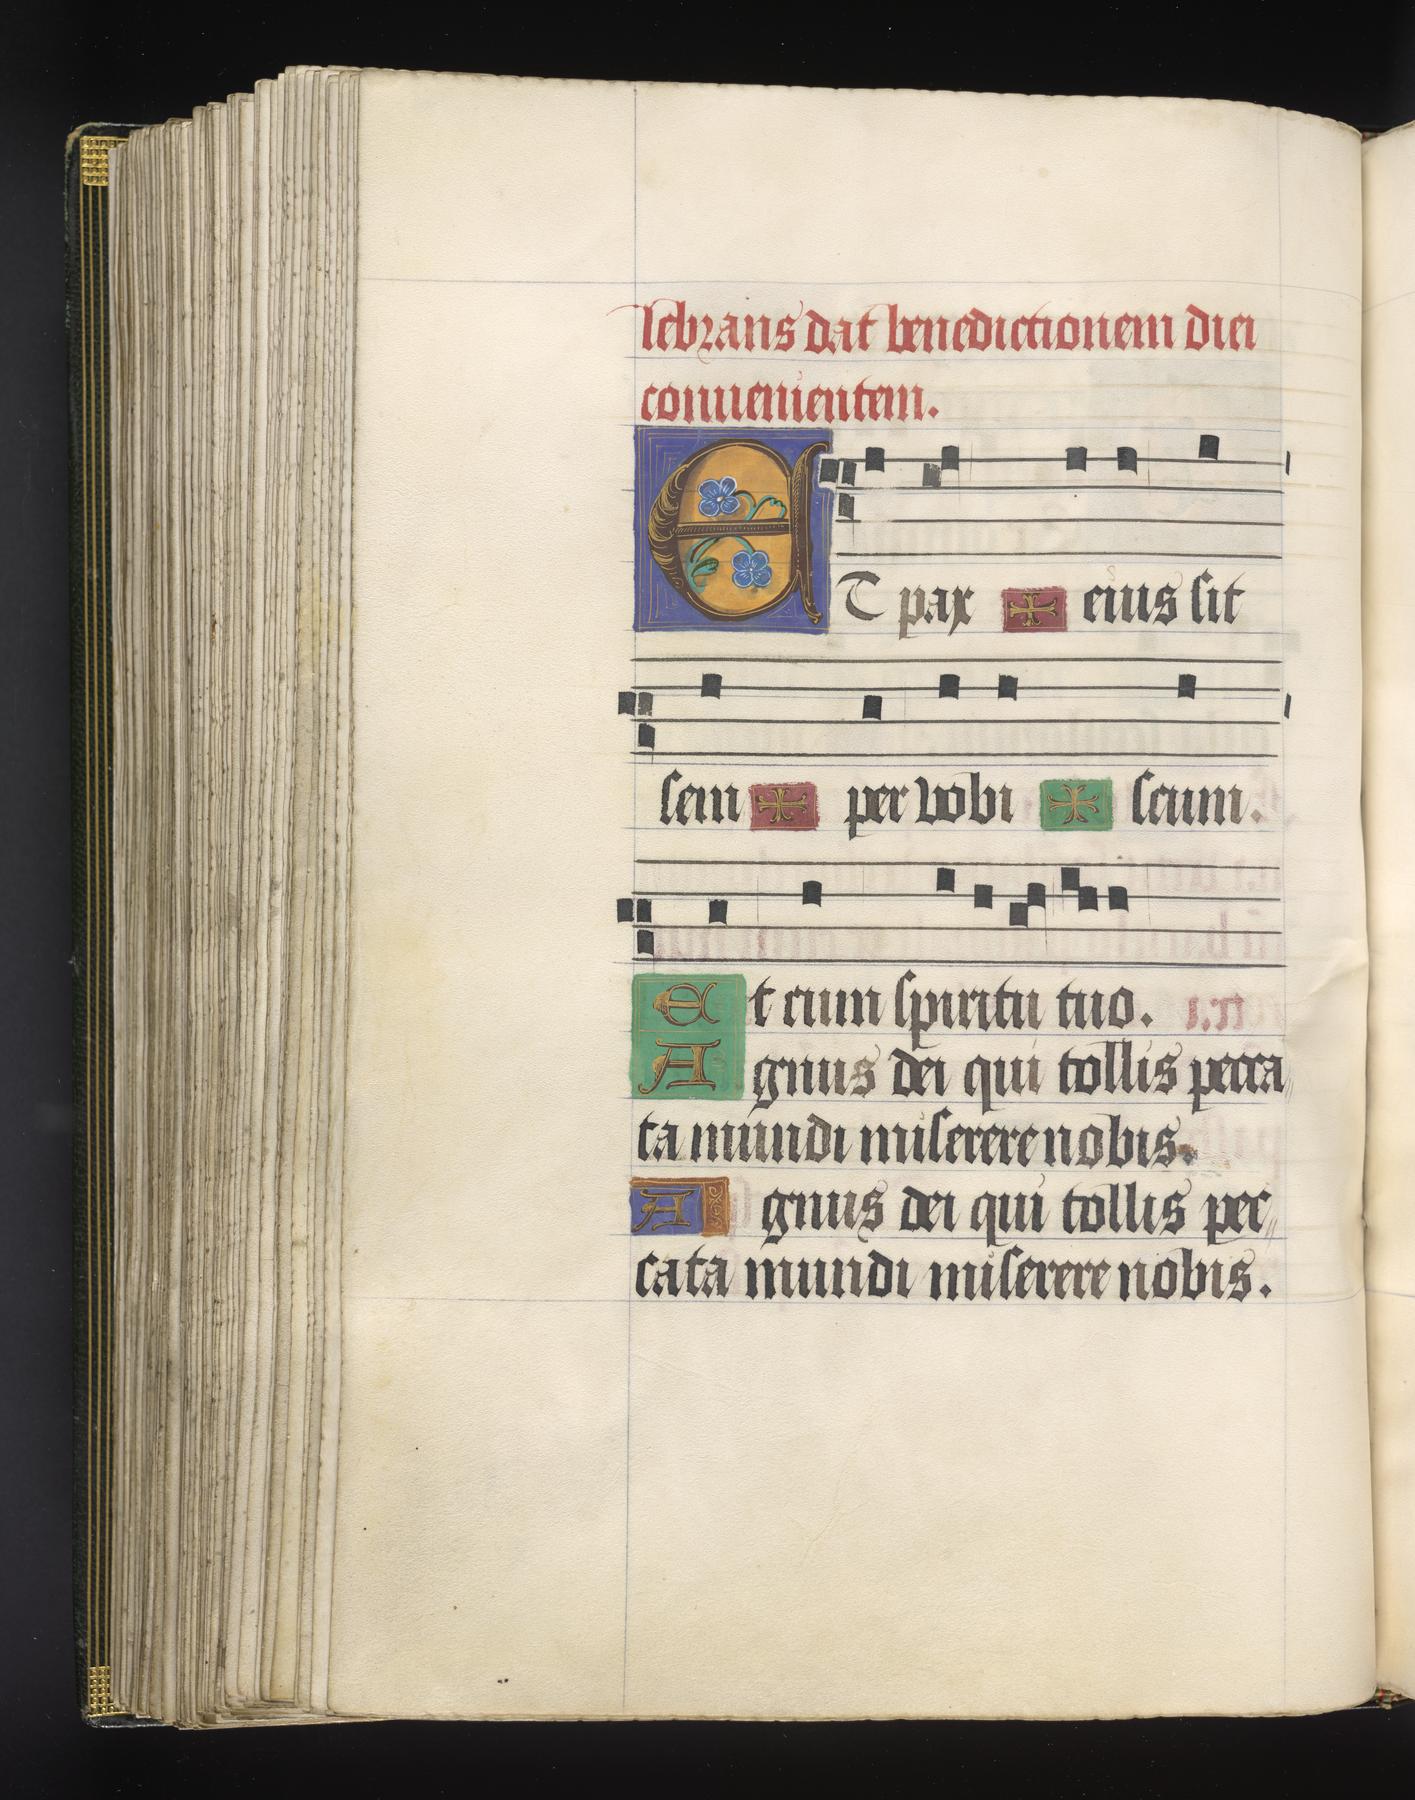 lebrans dat benedictionem diei
conuenientem.
ET pax eius sit
sem per vobi scum.
Et cum spiritu tuo.
Agnus dei qui tollis pecca
ta mundi miserere nobis.
Agnus dei qui tollis pec
cata mundi miserere nobis.